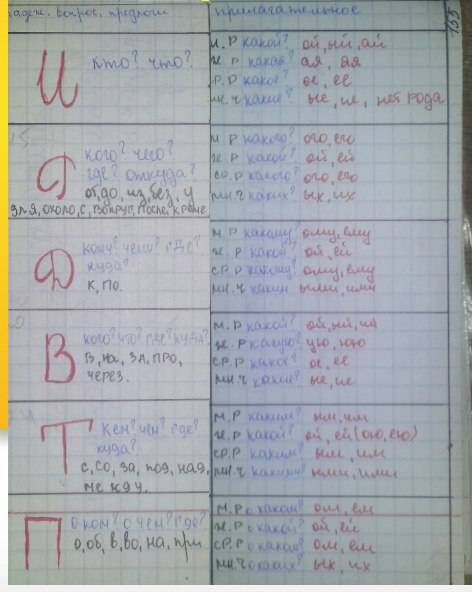 падеж. вопрос. предлоги
прилагательное
155
И
кто? что?
м.р какой? ой, ый, ий
ж.р какая? ая, яя
ср.р какое? ое, ее
мн.ч какие? ые, ие, нет рода
Р
кого? чего?
где? откуда?
от, до, из, без, у
для, около, с, вокруг, после, кроме
м.р какого? ого, его
ж.р какой? ой, ей
ср.р какого? ого, его
мн.ч каких? ых, их
Д
кому? чему? где?
куда?
к, по.
м.р какому? ому, ему
ж.р какой? ой, ей
ср.р какому? ому, ему
мн.ч каким ыми, ими
В
кого? что? где? куда?
в, на, за, про,
через.
м.р какой? ой, ый, ий
ж.р какую? ую, юю
ср.р какое? ое, ее
мн.ч какие? ые, ие
Т
кем? чем? где?
куда?
с, со, за, под, над,
между.
м.р каким? ым, им
ж.р какой? ой, ей (ою, ею)
ср.р каким? ым, им
мн.ч какими? ыми, ими
П
о ком? о чем? где?
о, об, в, во, на, при
м.р о каком? ом, ем
ж.р о какой? ой, ей
ср.р о каком? ом, ем
мн.ч о каких? ых, их